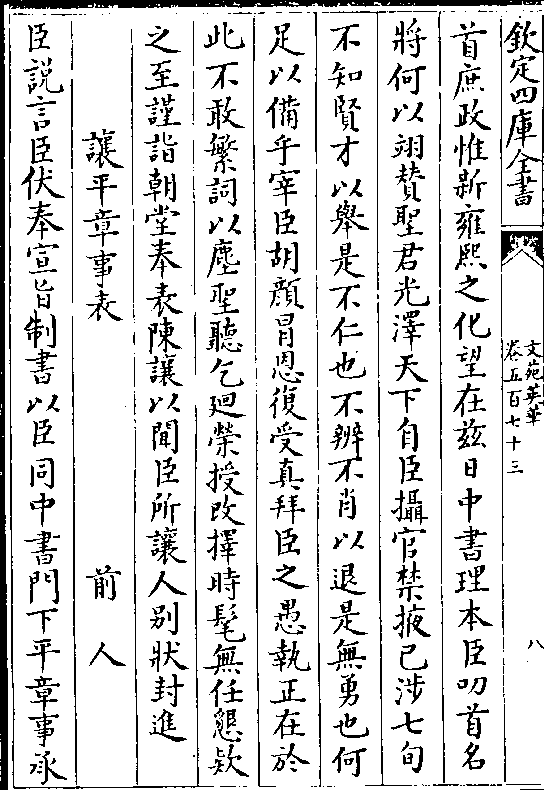 欽定四庫全書
文苑英華
卷五百七十三
八
首庶政惟新雍熙之化望在茲日中書理本臣叨首名
將何以翊賛聖君光澤天下自臣攝官禁掖已涉七旬
不知賢才以舉是不仁也不辨不肖以退是無勇也何
足以備乎宰臣胡顔冐恩復受真拜臣之愚執正在於
此不敢繁詞以塵聖聽乞廻榮授改擇時髦無任懇欵
之至謹詣朝堂奉表陳讓以聞臣所讓人别狀封進
讓平章事表 前人
臣説言臣伏奉宣旨制書以臣同中書門下平章事承